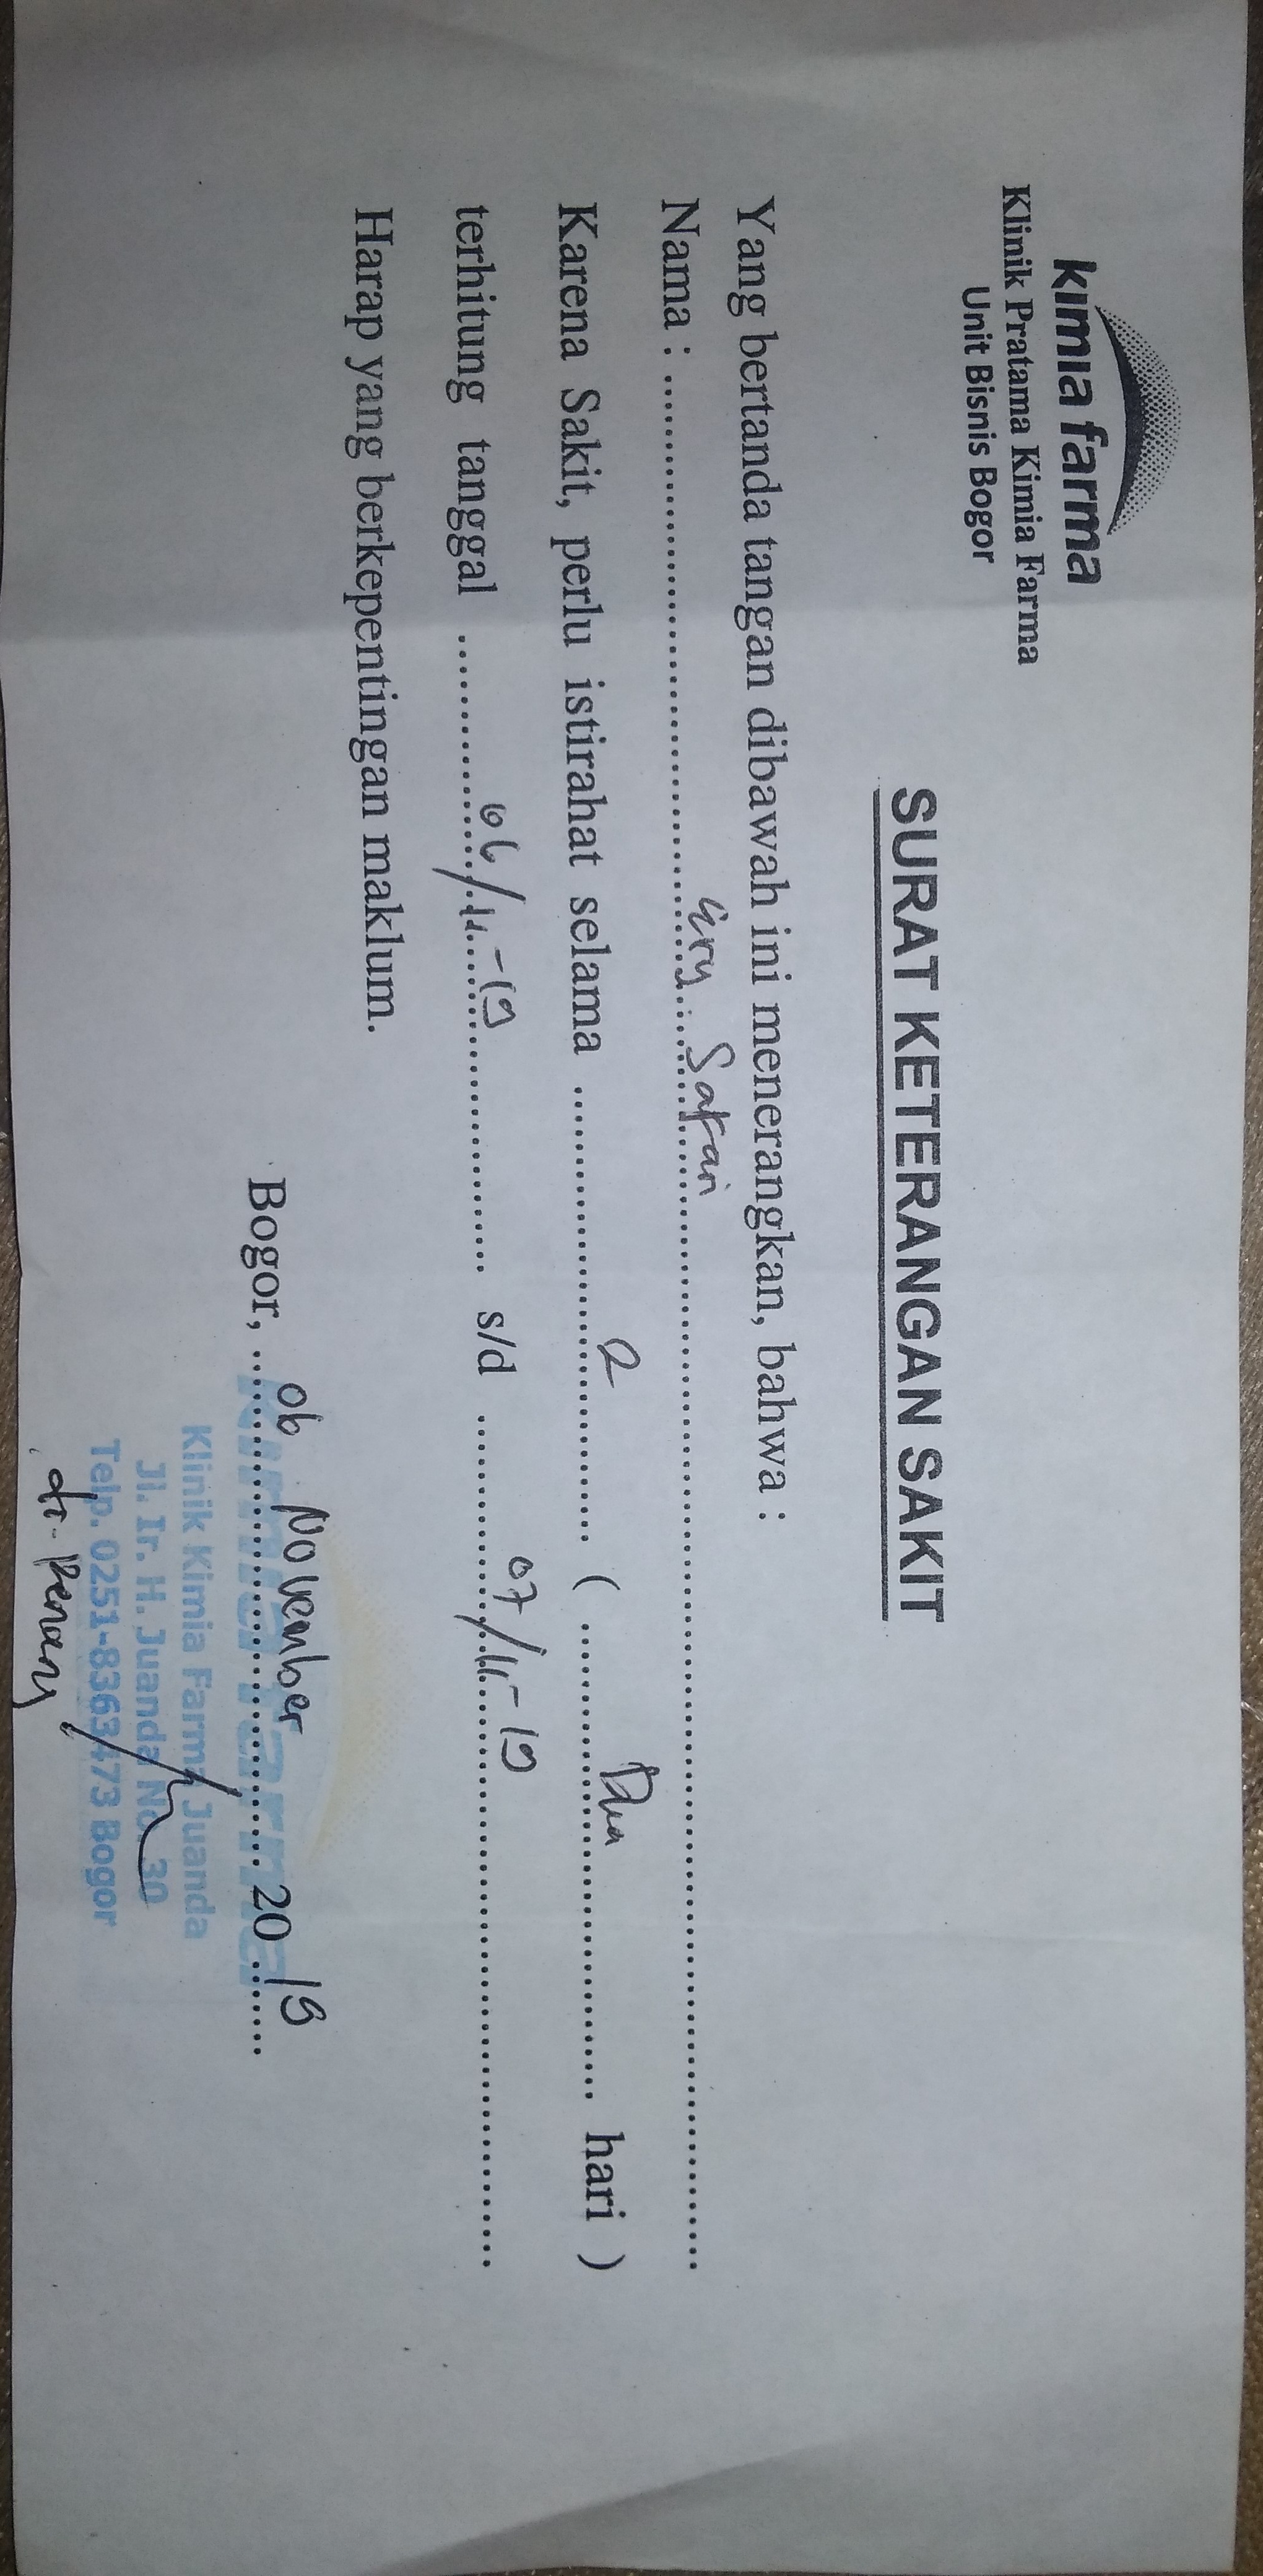 kimia farma
Klinik Pratama Kimia Farma
Unit Bisnis Bogor
SURAT KETERANGAN SAKIT
Yang bertanda tangan dibawah ini menerangkan, bahwa :
Nama : Ery Safari
Karena Sakit, perlu istirahat selama 2 ( Dua hari )
terhitung tanggal 06/11-19 s/d 07/11-19
Harap yang berkepentingan maklum.
Bogor, 06 November 2019
kimia farma
Klinik Kimia Farma Juanda
Jl. Ir. H. Juanda No. 30
Telp. 0251-8363473 Bogor
dr.